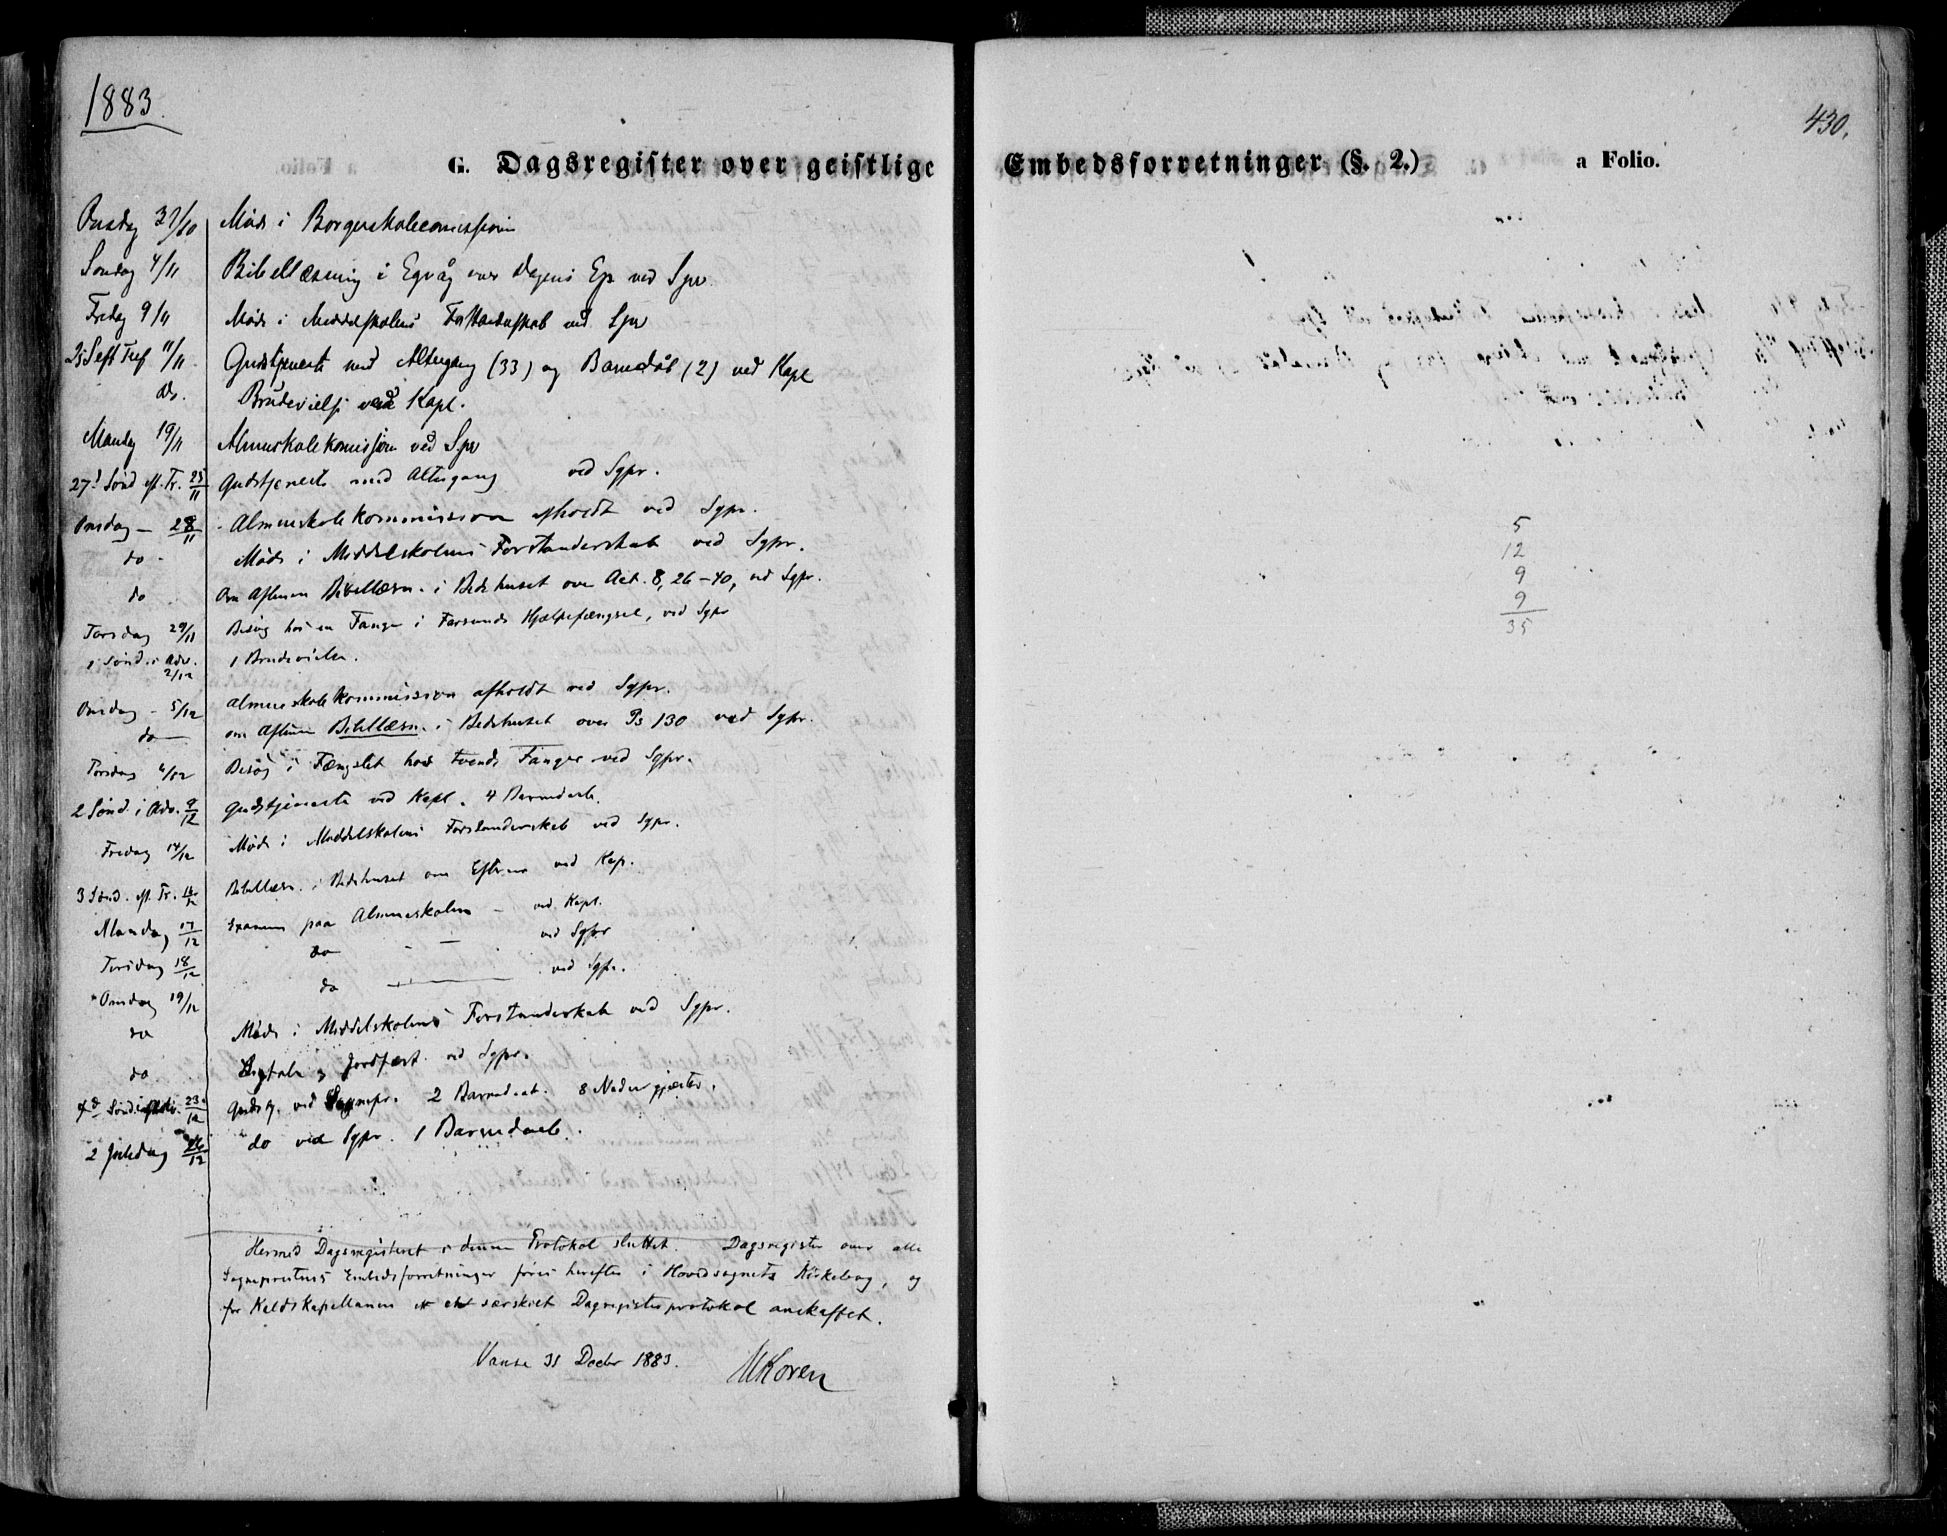 1883.
430.
G. Dagsregister over geistlige Embedsforretninger (§. 2.) a Folio.
Onsdag 31/10 Møde i Borgerskolecomissionen
Søndag 4/11 Bibellæsning i Egvåg over Dagens Ep ved Spr
Fredag 9/11 Møde i Middelskolens Forstanderskab ved Spr
25 S eft Tref 11/11 Gudstjeneste med Altergang (33) og Barnedåb (2) ved Kapl
do. Brudevielse ved Kapl.
Mandag 19/11 Almueskolekomission ved Spr
27d Sønd eft. Tr. 25/11 Gudstjeneste med Altergang ved Sgpr.
Onsdag – 28/11 Almueskolekommission afholdt ved Sgpr.
do - Møde i Middelskolens Forstanderskab ved Sgpr.
do Om Aftenen Bibellæsn. i Bedehuset over Act. 8, 26–40, ved Sgpr.
Torsdag 29/11 Besøg hos en Fange i Farsunds Hjælpefængsel, ved Sgpr
1 Sønd. i Adv. 2/12 1 Brudevielse.
Onsdag – 5/12 Almueskolekommission afholdt ved Sgpr.
do om Aftenen Bibellæsn. i Bedehuset over Ps 130 ved Sgpr.
Torsdag 6/12 Besøg i Fængslet hos tvende Fanger ved Sgpr.
2 Sønd. i Adv. 9/12 Gudstjeneste ved Kapl. 4 Barnedaab.
Fredag 14/12 Møde i Middelskolens Forstanderskab ved Sgpr.
3 Sønd. eft. Tr. 16/12 Bibellæsn. i Bedehuset om Efterm ved Kap.
Mandag 17/12 Examen paa Almueskolen – ved Kapl.
Tirsdag 18/12 do – ved Sgpr
Onsdag 19/12 do ved Sgpr.
do Møde i Middelskolens Forstanderskab ved Sgpr.
do Ligtale og Jordfæst. ved Sgpr.
4d Sønd i Adv. 23/12 Gudstj. ved Sognepr. 2 Barnedaab. 8 Nadvergjæster.
2 Juledag 26/12 do ved Sgpr. 1 Barnedaab.
5
12
9
9
35
Hermed Dagsregisteret i denne Protokol sluttet. Dagsregister over alle
Sognepræstens Embedsforretninger føres herefter i Hovedsognets Kirkebog, og
for Kaldskapellanen er et særskilt Dagsregisterprotokol anskaffet.
Vanse 31 Decbr 1883. Koren